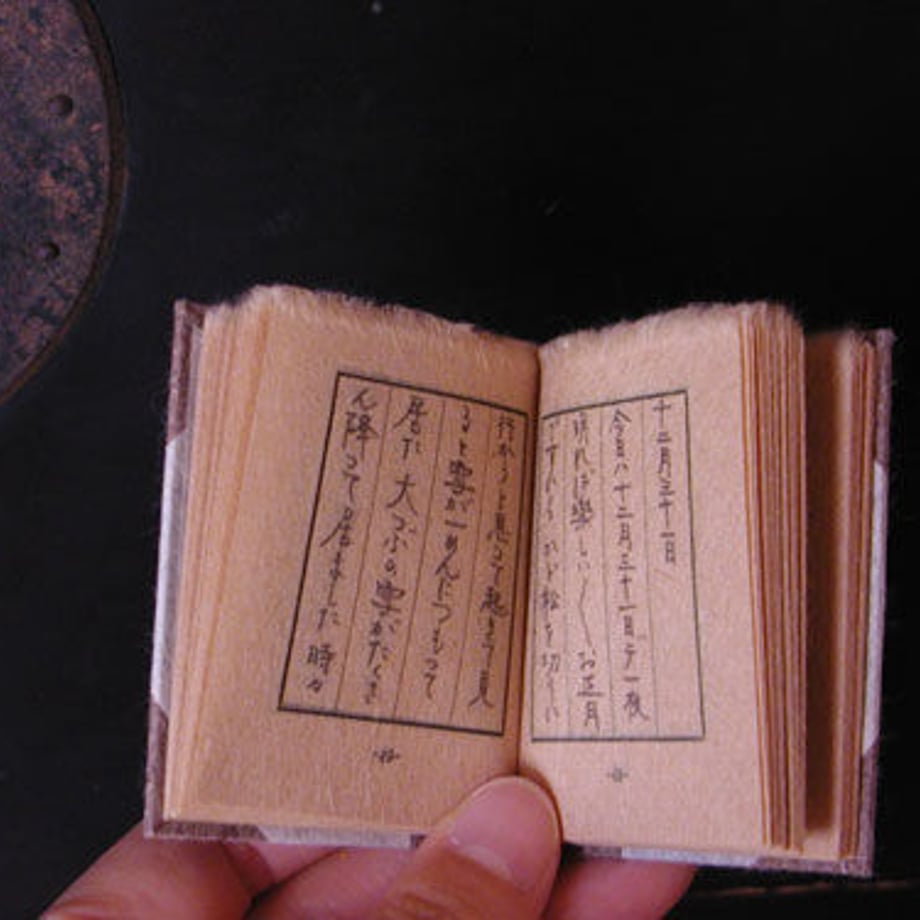 十二月三十一日
今日ハ十二月三十一日デ一夜
明ければ樂しい〳〵お正月
ですから かど松を切りに
行かうと思って起きて見
ると雪が一めんにつもって
居た 大つぶの雪がたくさ
ん降って居ました 時々